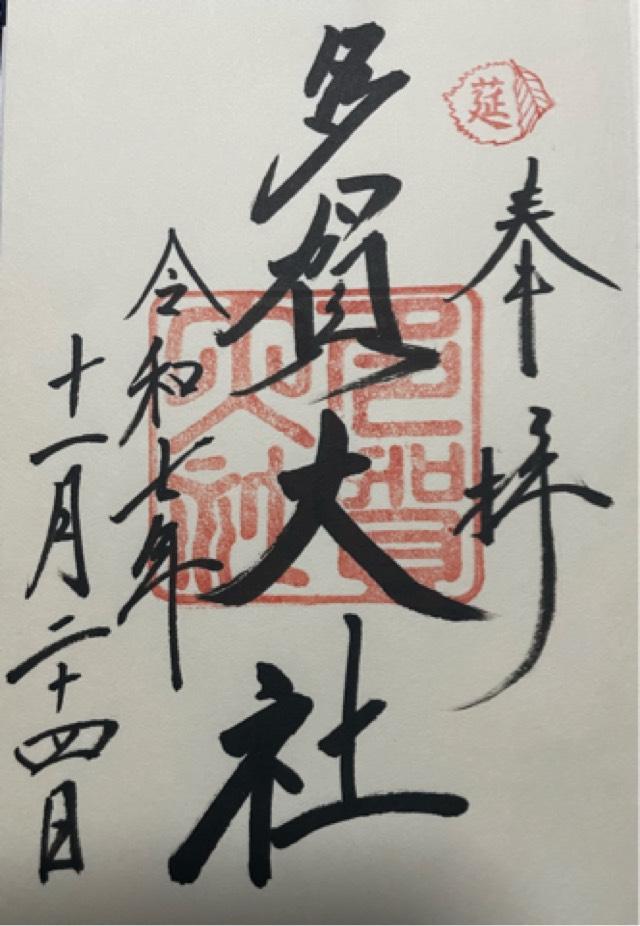 延
奉拝
多賀大社
令和七年
十一月二十四日